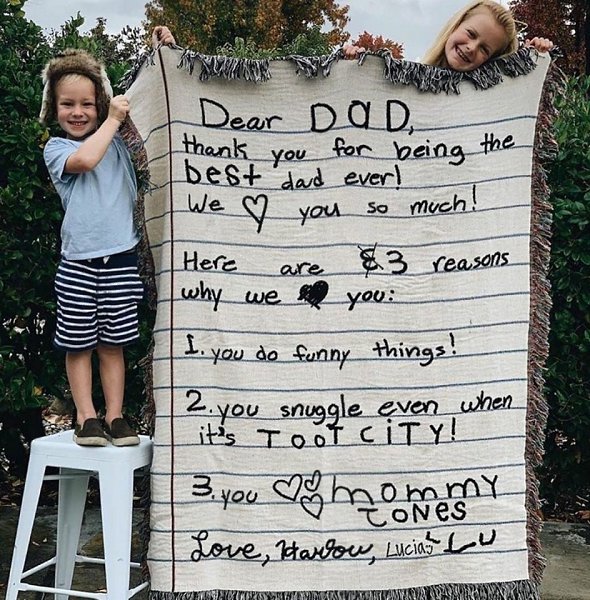 Dear DAD,
thank you for being the
best dad ever!
We ♡ you so much!
Here are 3 reasons
why we ♥ you:
1. you do funny things!
2. you snuggle even when
it's TOOT CiTY!
3. you ♡♡♡ mommy
TONES
Love, Harlow, Lucias LU